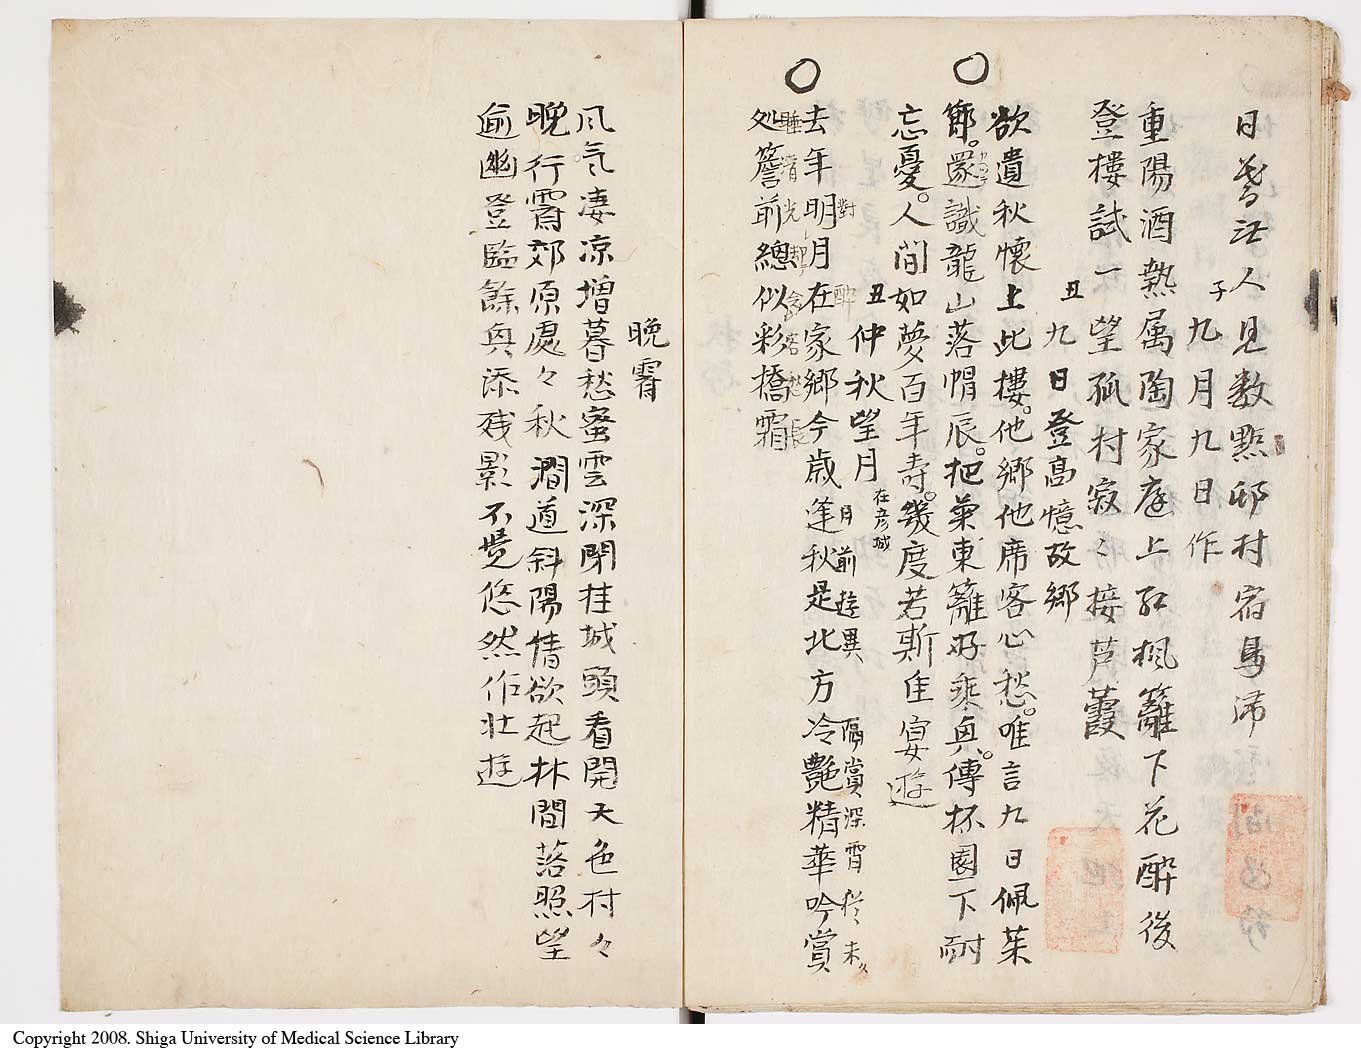 日暮江人見数點邨村宿鳥帰
子 九月九日作
重陽酒熟属陶家庭上紅楓籬下花酔後
登樓試一望孤村寂々接芦葭
丑 九日登髙憶故郷
欲遣秋懷上此樓。他郷他席客心愁。唯言九日佩茱
節。還識龍山落帽辰。把菊東籬好乘興。傳杯園下耐
忘憂。人間如夢百年寿。幾度若斯佳宴遊
丑 仲秋望月 在彦城
對 酔 月前遊異 隔賞深宵 未
去年明月在家郷今歳逢秋是北方冷艶精華吟賞
睡 清光 客 長
処簷前總似彩橋霜
晩霽
風氣凄涼増暮愁蜜雲深閉挂城頭看開天色村々
晩行霽郊原處々秋澗道斜陽情欲起林間落照望
逾幽登臨餘興添残影不覚悠然作壮遊
Copyright 2008. Shiga University of Medical Science Library